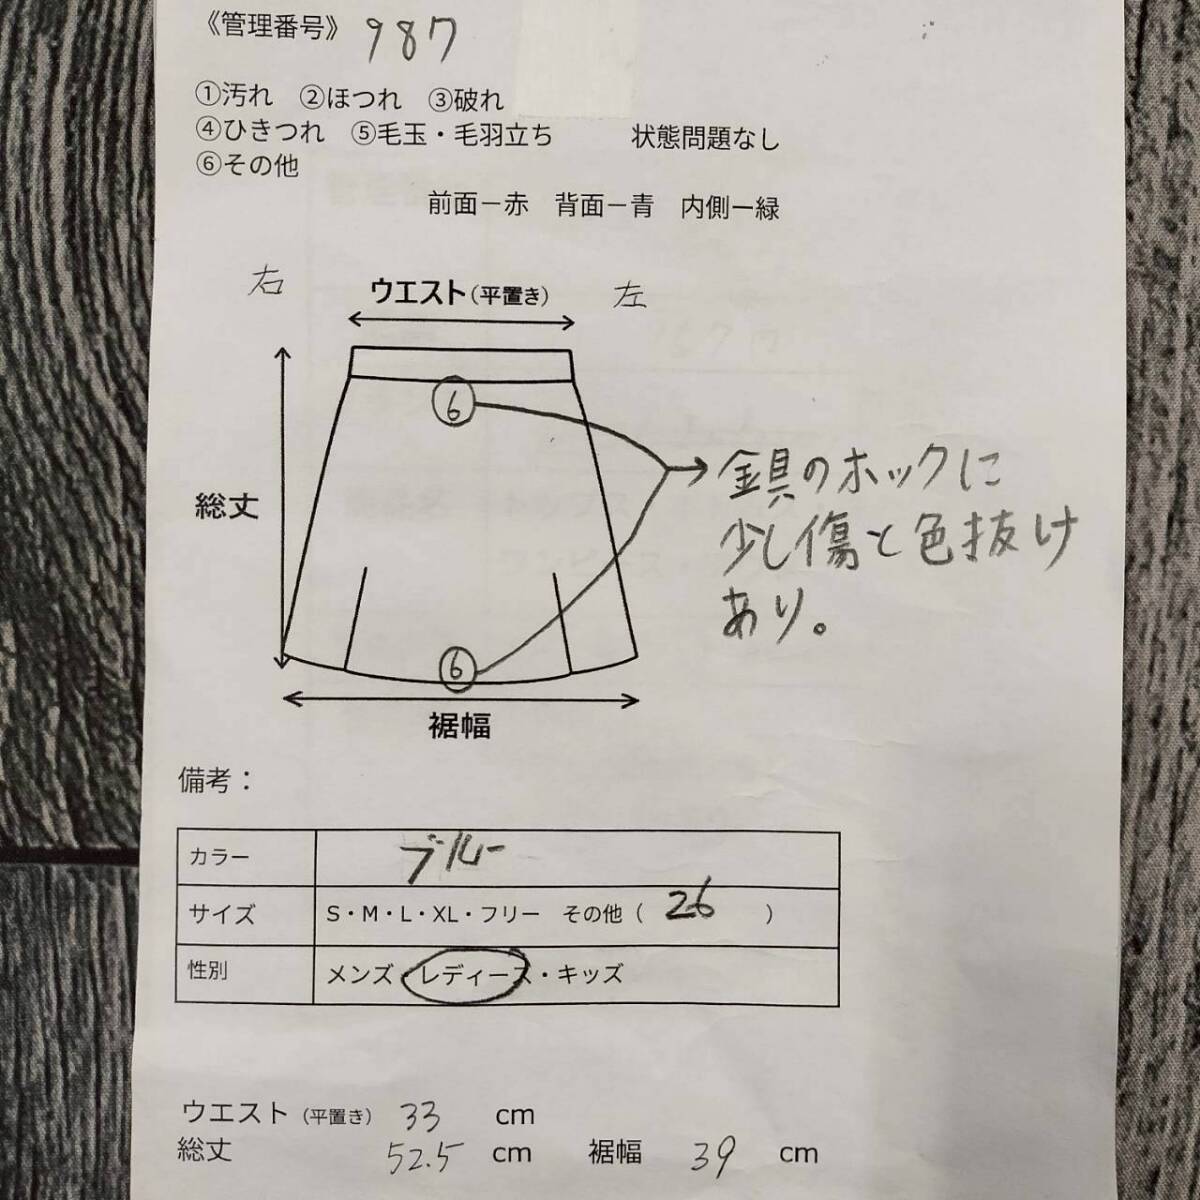 《管理番号》 987
①汚れ ②ほつれ ③破れ
④ひきつれ ⑤毛玉・毛羽立ち 状態問題なし
⑥その他
前面ー赤 背面ー青 内側ー緑
右 ウエスト(平置き) 左
⑥
金具のホックに
総丈
少し傷と色抜け
あり。
⑥
裾幅
備考:
カラー ブルー
サイズ S・M・L・XL・フリー その他( 26 )
性別 メンズ・レディース・キッズ
ウエスト(平置き) 33 cm
総丈 52.5 cm 裾幅 39 cm